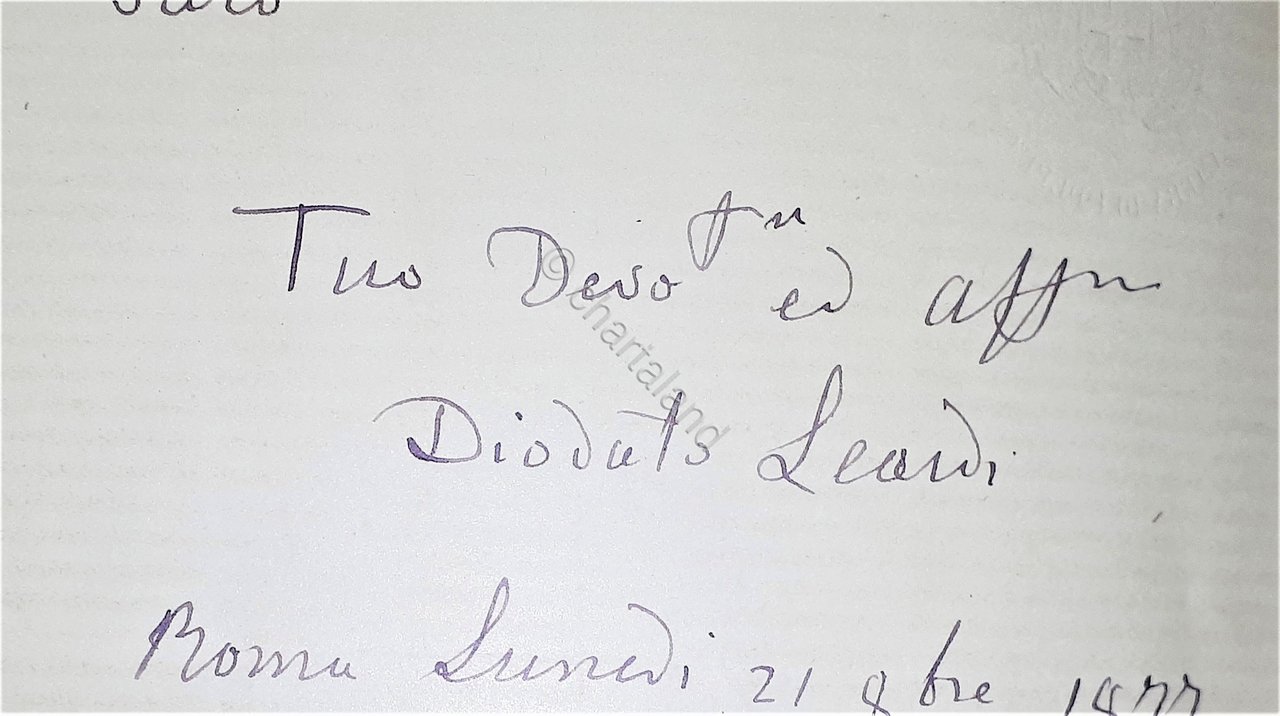 Tuo Devo tm ed affm
Diodato Leardi
Roma Lunedi 21 8bre
© chartaland